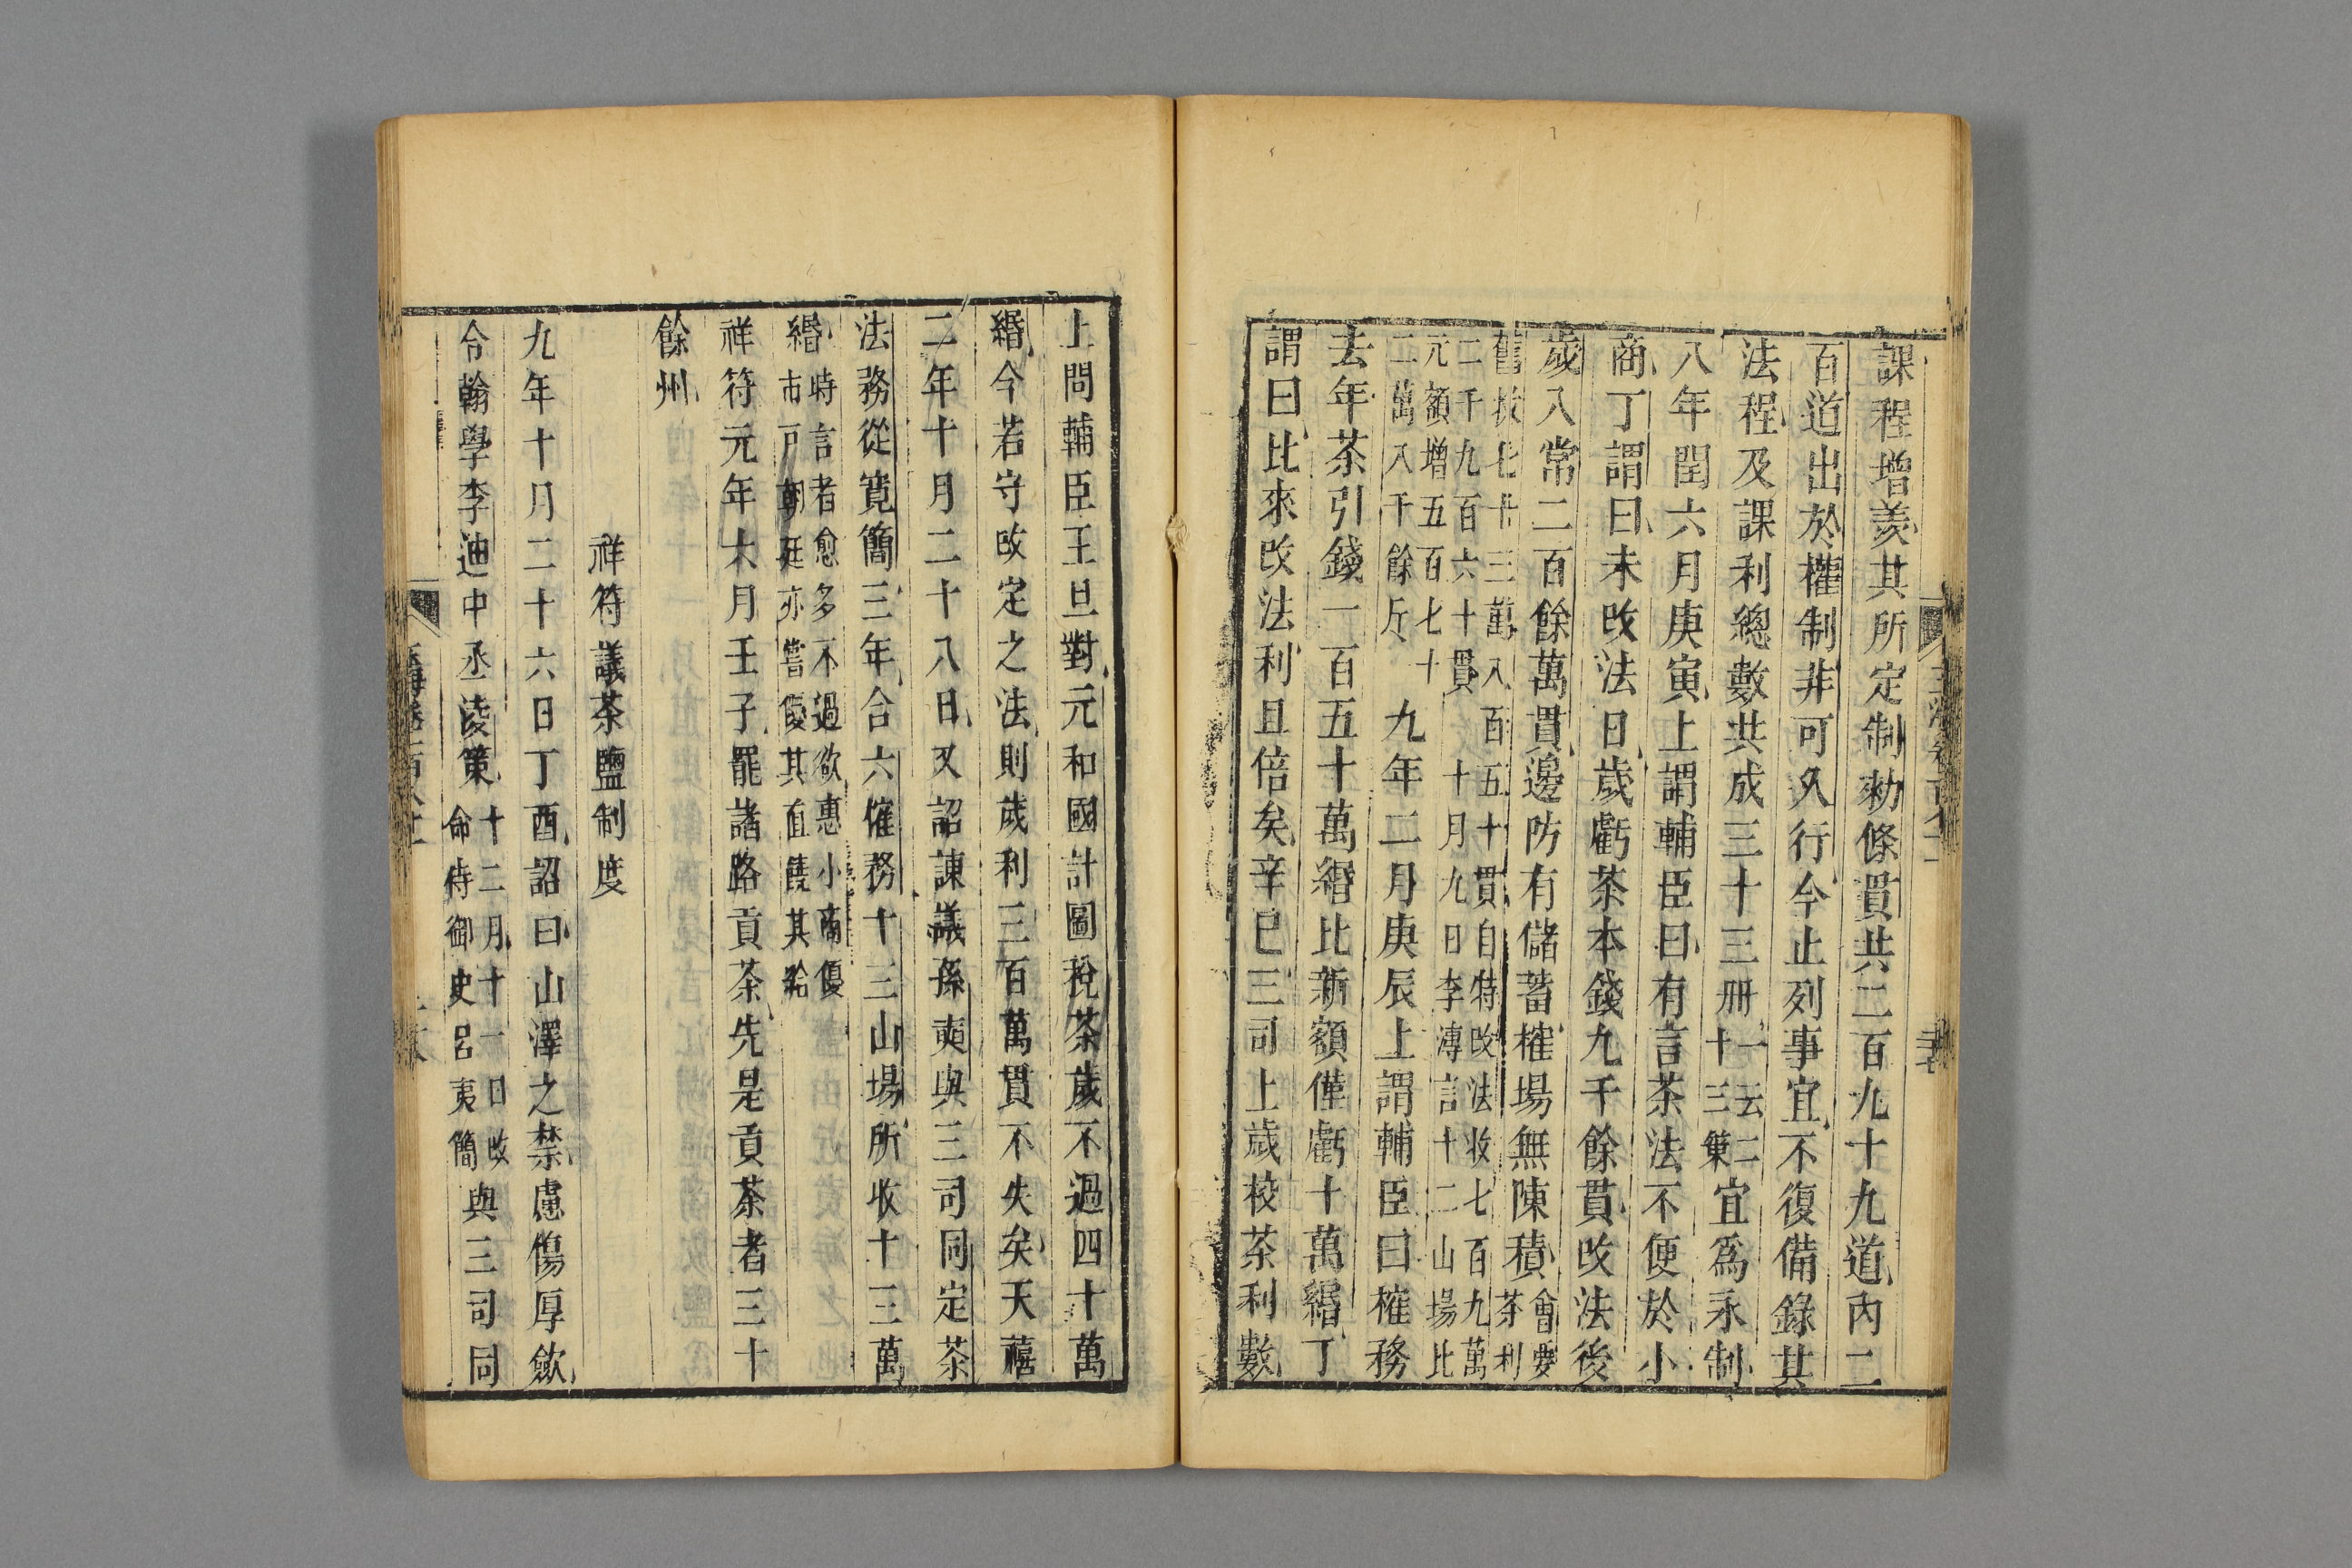 課程增羨其所定制勑條貫共二百九十九道內二
百道出於權制非可久行今止列事宜不復備錄其
法程及課利總數共成三十三冊一云二十三策宜為永制
八年閏六月庚寅上謂輔臣曰有言茶法不便於小
商丁謂曰未改法日歲虧茶本錢九千餘貫改法後
歲入常二百餘萬貫邊防有儲蓄榷場無陳積會要茶利
舊收七十三萬八百五十貫自特改法收七百九萬
二千九百六十貫十月九日李溥言十二山場比
元額增五百七十
二萬八千餘斤九年二月庚辰上謂輔臣曰榷務
去年茶引錢一百五十萬緡比新額僅虧十萬緡丁
謂曰比來改法利且倍矣辛巳三司上歲校茶利數
上問輔臣王旦對元和國計圖稅茶歲不過四十萬
緡今若守改定之法則歲利三百萬貫不失矣天禧
二年十月二十八日又詔諫議孫奭與三司同定茶
法務從寬簡三年合六榷務十三山場所收十三萬
緡時言者愈多不過欲惠小商優市戶朝廷亦嘗優其直饒其給
祥符元年六月壬子罷諸路貢茶先是貢茶者三十
餘州
祥符議茶鹽制度
九年十月二十六日丁酉詔曰山澤之禁慮傷厚斂
令翰學李迪中丞淩策十二月十一日改命侍御史呂夷簡與三司同